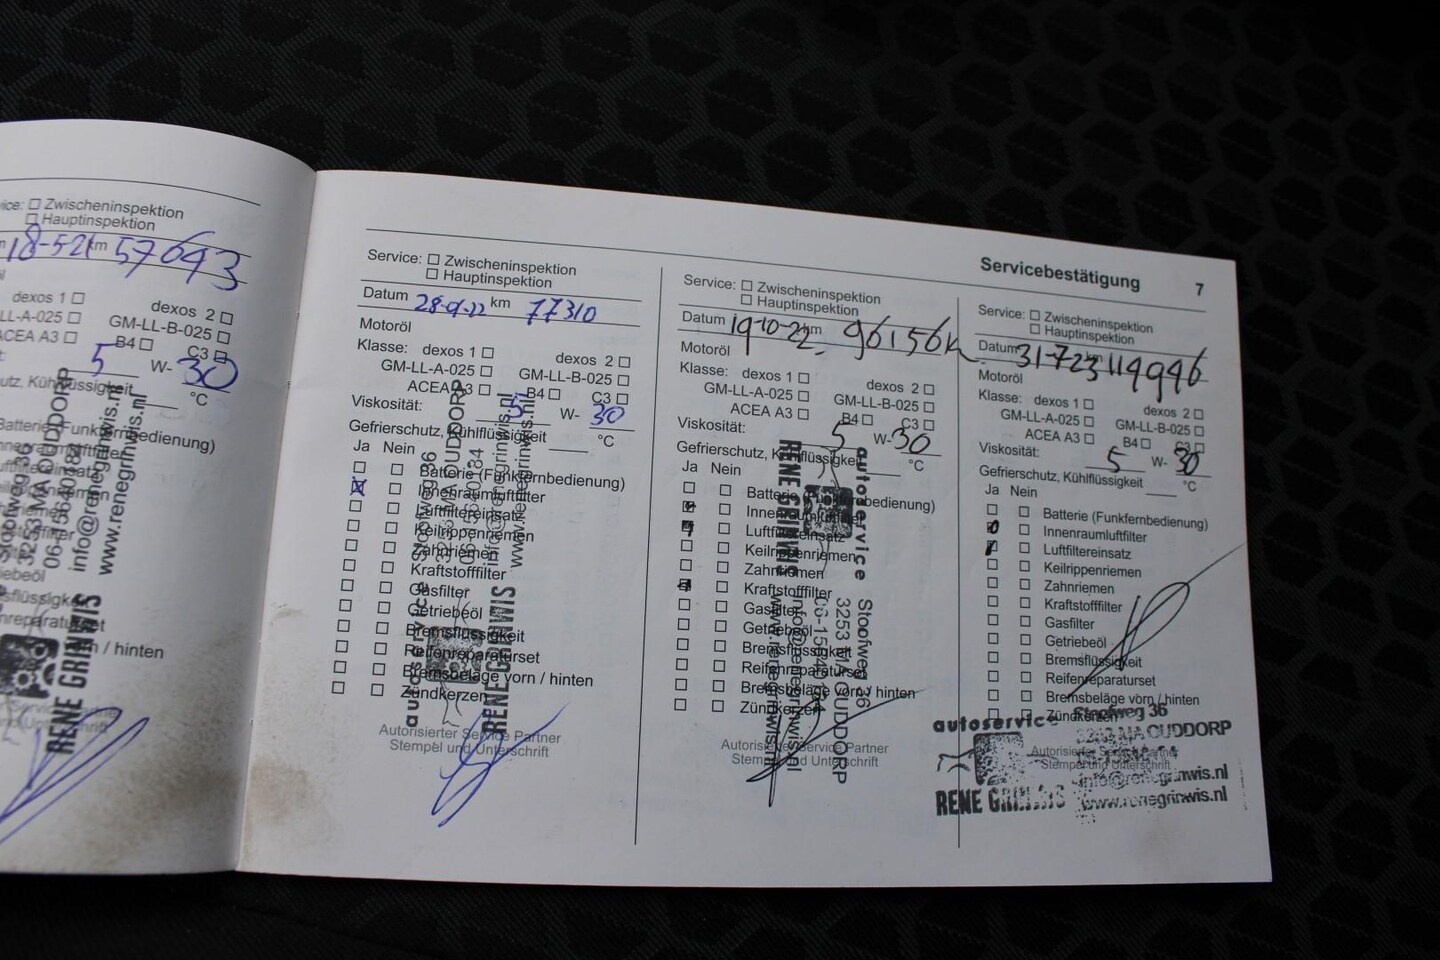 Zwischeninspektion
Hauptinspektion
18-521 km 57643
dexos 1 dexos 2
LL-A-025 GM-LL-B-025
ACEA A3 B4 C3
5 W-30
Kühlflüssigkeit °C
Batterie (Funkfernbedienung)
/ hinten
3253 MA OUDDORP
info@renegrinwis.nl
www.renegrinwis.nl
RENE GRINWIS
Servicebestätigung 7
Service: Zwischeninspektion
Hauptinspektion
Datum 28-01-22 km 77310
Motoröl
Klasse: dexos 1 dexos 2
GM-LL-A-025 GM-LL-B-025
ACEA A3 B4 C3
Viskosität: 5 W-30
Gefrierschutz, Kühlflüssigkeit °C
Ja Nein
Batterie (Funkfernbedienung)
Innenraumluftfilter
Luftfiltereinsatz
Keilrippenriemen
Zahnriemen
Kraftstofffilter
Gasfilter
Getriebeöl
Bremsflüssigkeit
Reifenreparaturset
Bremsbeläge vorn / hinten
Zündkerzen
Autorisierter Service Partner
Stempel und Unterschrift
autoservice
RENE GRINWIS
info@renegrinwis.nl
www.renegrinwis.nl
Service: Zwischeninspektion
Hauptinspektion
Datum 19-10-22 km 96156 km
Motoröl
Klasse: dexos 1 dexos 2
GM-LL-A-025 GM-LL-B-025
ACEA A3 B4 C3
Viskosität: 5 W-30
Gefrierschutz, Kühlflüssigkeit °C
Ja Nein
Batterie (Funkfernbedienung)
Innenraumluftfilter
Luftfiltereinsatz
Keilrippenriemen
Zahnriemen
Kraftstofffilter
Gasfilter
Getriebeöl
Bremsflüssigkeit
Reifenreparaturset
Bremsbeläge vorn / hinten
Zündkerzen
Autorisierter Service Partner
Stempel und Unterschrift
autoservice
RENE GRINWIS
Stoofweg 36
3253 MA OUDDORP
info@renegrinwis.nl
www.renegrinwis.nl
Service: Zwischeninspektion
Hauptinspektion
Datum 31-723 km 119996
Motoröl
Klasse: dexos 1 dexos 2
GM-LL-A-025 GM-LL-B-025
ACEA A3 B4 C3
Viskosität: 5 W-30
Gefrierschutz, Kühlflüssigkeit °C
Ja Nein
Batterie (Funkfernbedienung)
Innenraumluftfilter
Luftfiltereinsatz
Keilrippenriemen
Zahnriemen
Kraftstofffilter
Gasfilter
Getriebeöl
Bremsflüssigkeit
Reifenreparaturset
Bremsbeläge vorn / hinten
Zündkerzen
Autorisierter Service Partner
Stempel und Unterschrift
autoservice
RENE GRINWIS
Stoofweg 36
3253 MA OUDDORP
info@renegrinwis.nl
www.renegrinwis.nl